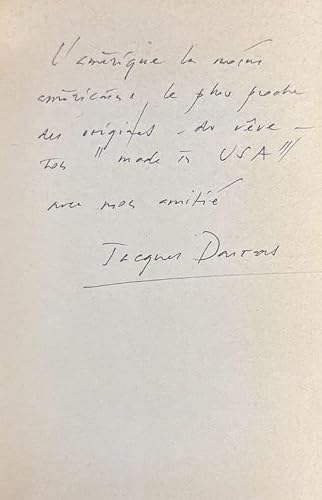 L'amérique la moins
américaine, le plus proche
des origines - du rêve -
"made in USA"
avec mon amitié
Jacques